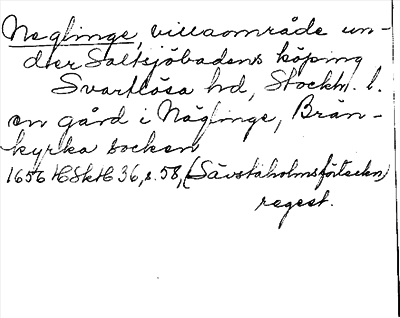 Neglinge, villaområde un-
der Saltsjöbadens köping
Svartlösa hd, Stockh. l.
en gård i Näglinge, Brän-
kyrka socken
1656 HSkH 36, s. 58, (Sävstaholmsförteckn)
regest.